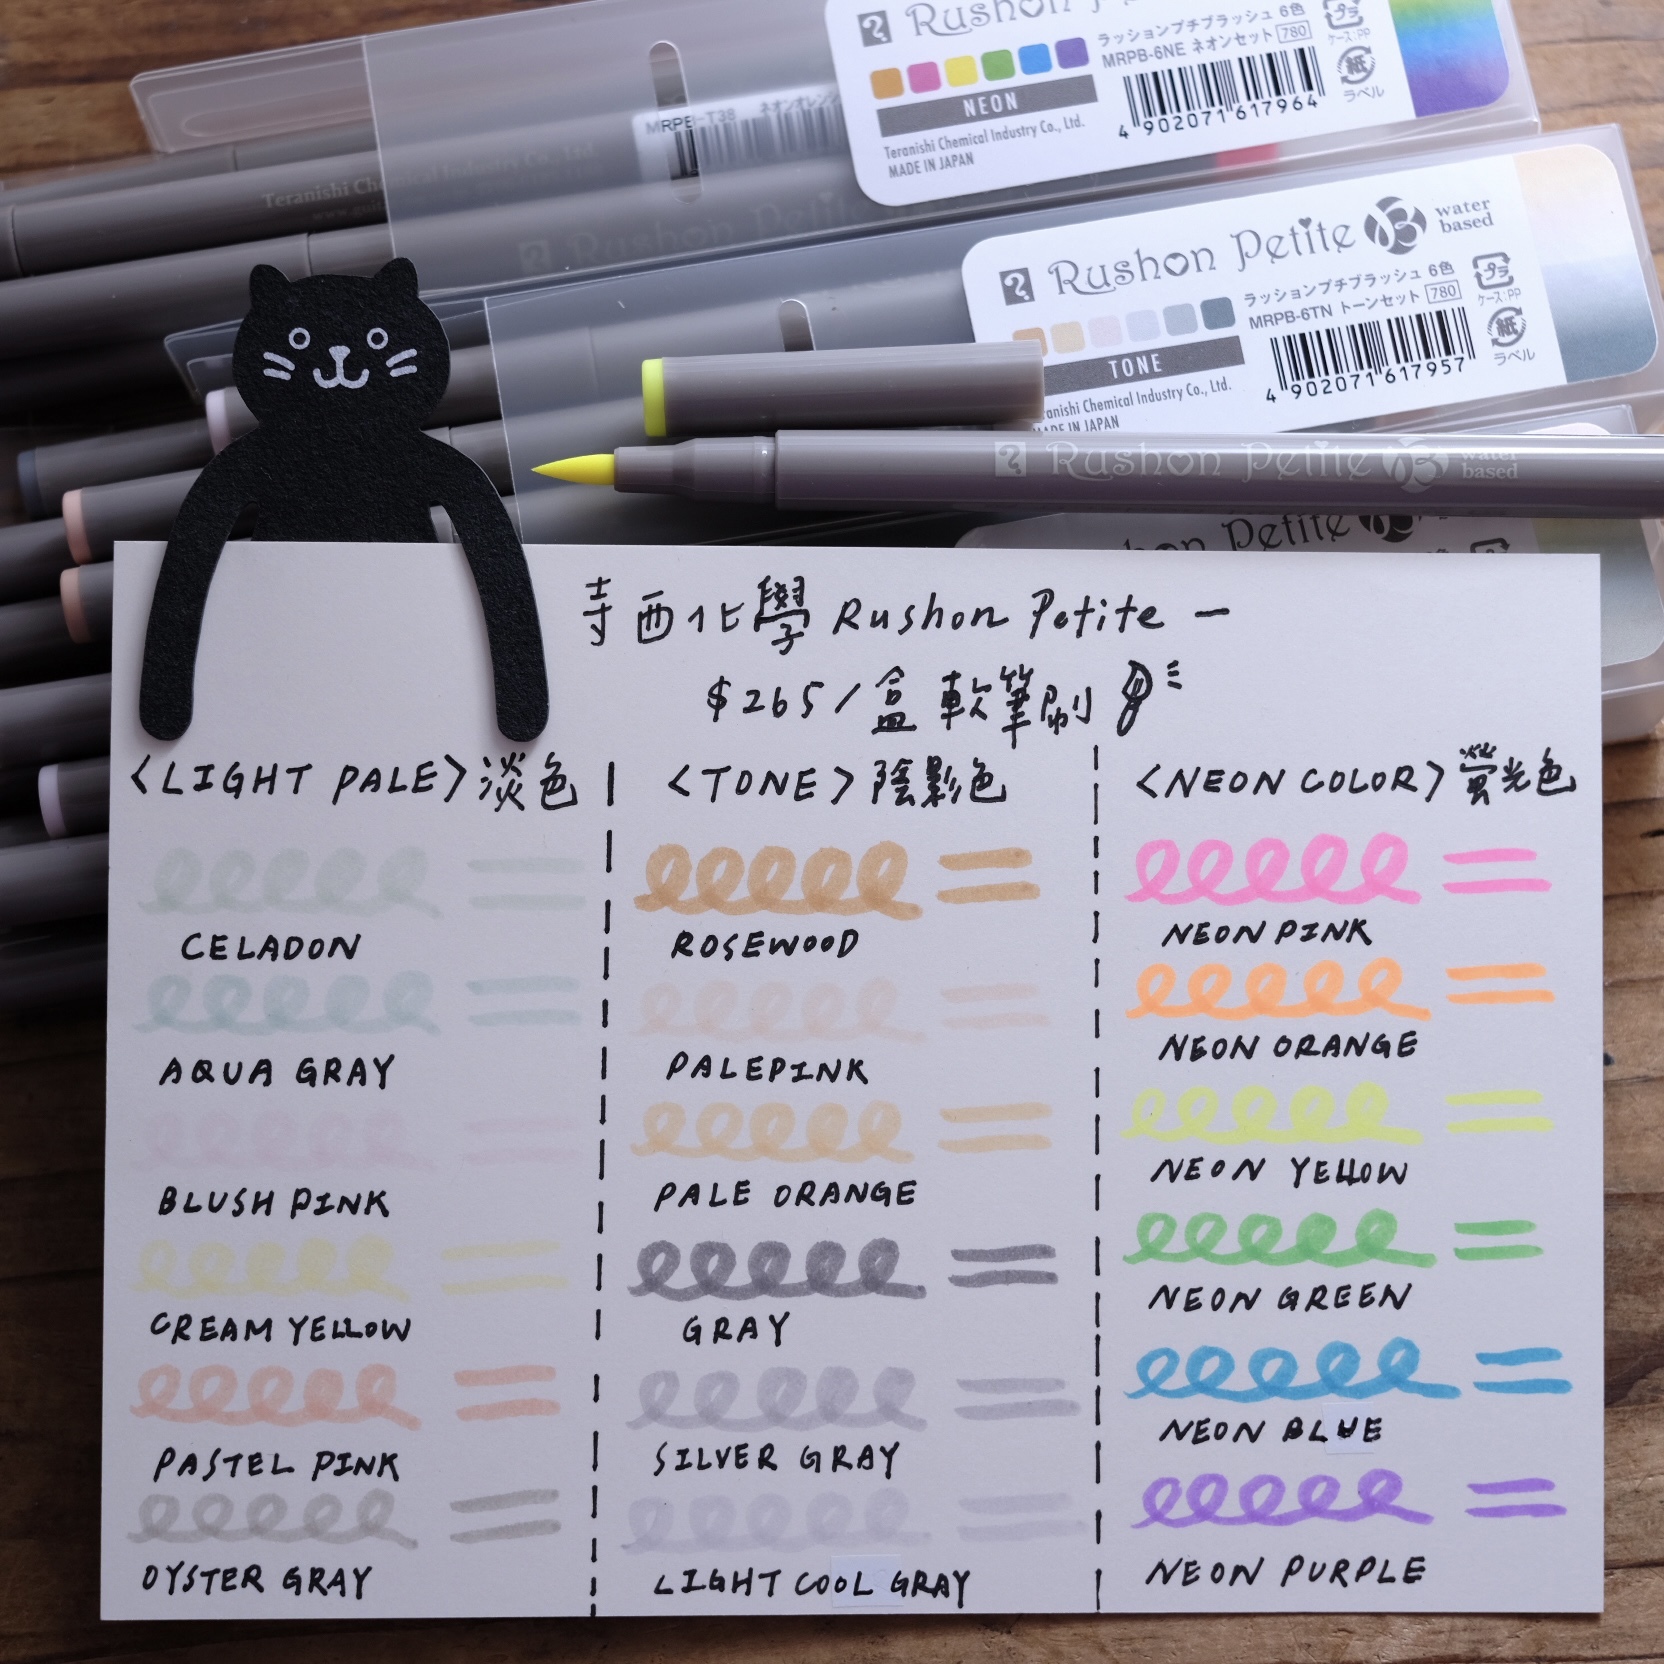 Rushon Petite
ラッションプチブラッシュ 6色
MRPB-6NE ネオンセット 780
ケース:PP
プラ
紙
ラベル
NEON
Teranishi Chemical Industry Co., Ltd.
MADE IN JAPAN
4 902071 617964
MRPB-T38 ネオンオレンジ
Teranishi Chemical Industry Co., Ltd.
Rushon Petite
Rushon Petite water based
ラッションプチブラッシュ 6色
MRPB-6TN トーンセット 780
プラ
ケース:PP
紙
ラベル
TONE
Teranishi Chemical Industry Co., Ltd.
MADE IN JAPAN
4 902071 617957
Rushon Petite water based
Rushon Petite
寺西化學 Rushon Petite –
$265/盒 軟筆刷
<LIGHT PALE> 淡色
CELADON
AQUA GRAY
BLUSH PINK
CREAM YELLOW
PASTEL PINK
OYSTER GRAY
<TONE> 陰影色
ROSEWOOD
PALEPINK
PALE ORANGE
GRAY
SILVER GRAY
LIGHT COOL GRAY
<NEON COLOR> 螢光色
NEON PINK
NEON ORANGE
NEON YELLOW
NEON GREEN
NEON BLUE
NEON PURPLE